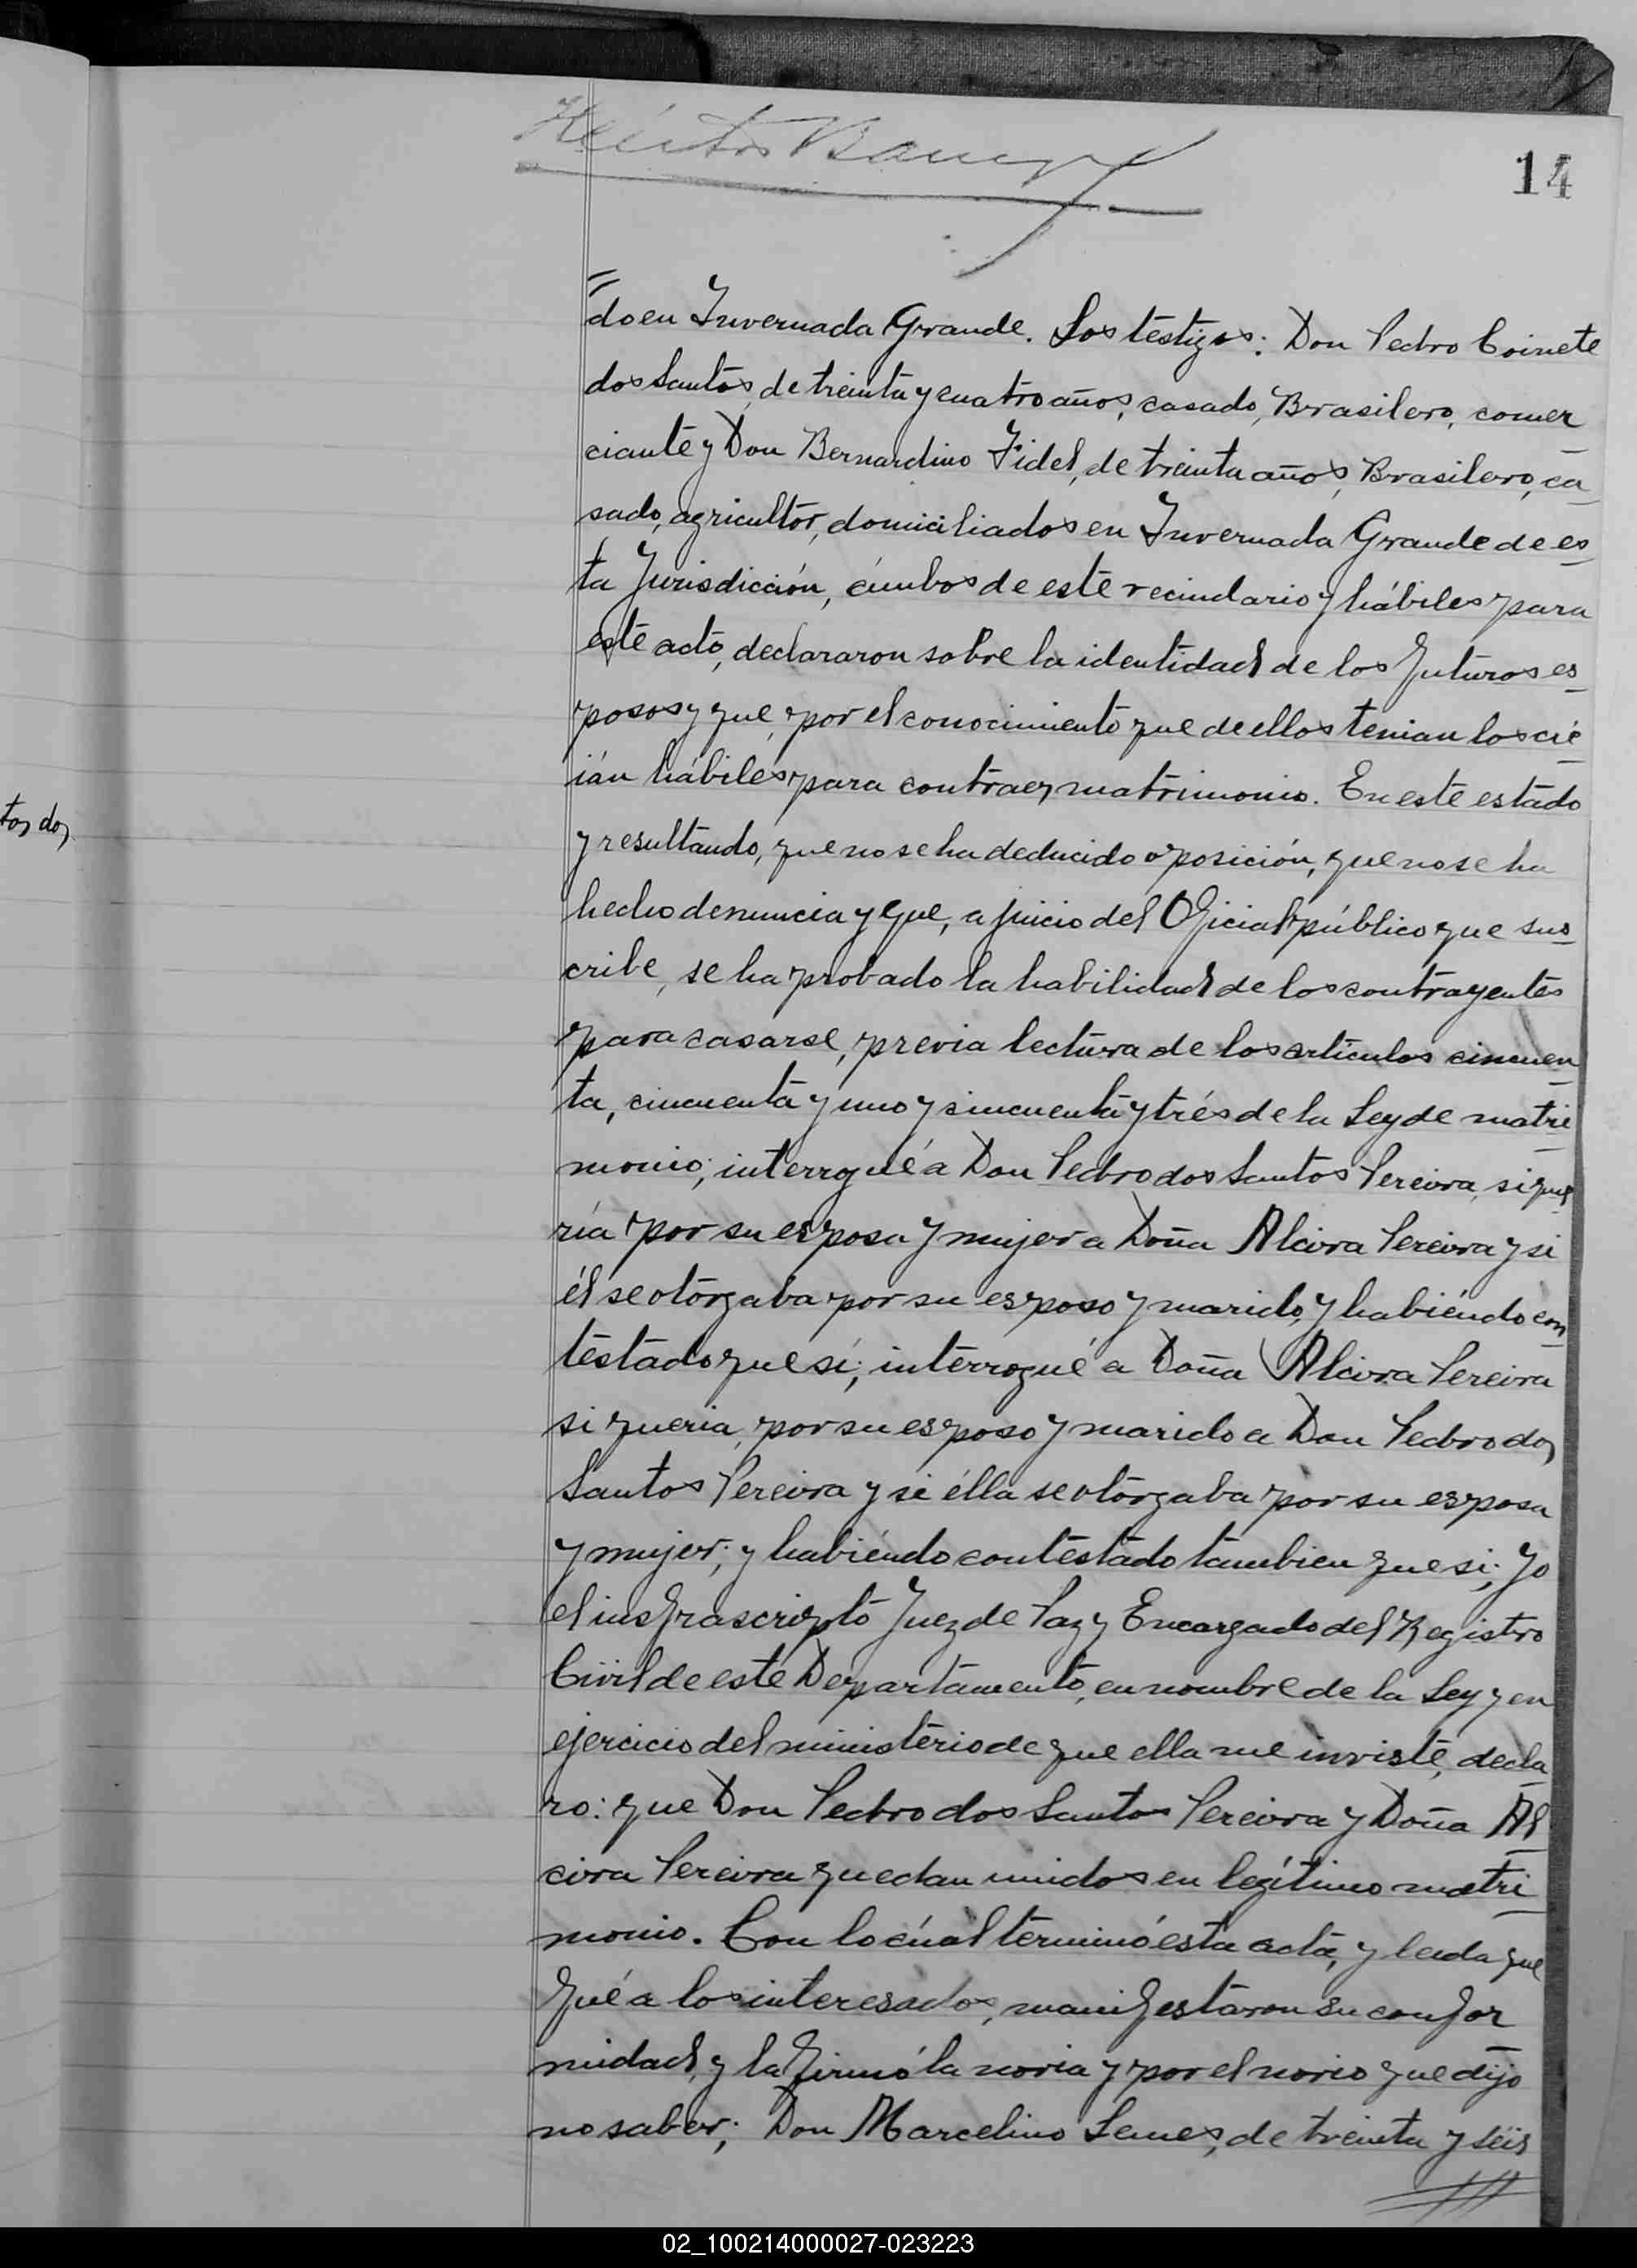 14
do en Invernada Grande. Los testigos: Don Pedro Coinete
dos Santos, de treinta y cuatro años, casado, Brasilero, comer
ciante y Don Bernardino Fidel, de treinta años, Brasilero, ca
sado, agricultor, domiciliados en Invernada Grande de es
ta Jurisdicción, ámbos de este vecindario y hábiles para
este acto, declararon sobre la identidad de los futuros es
posos y que, por el conocimiento que de ellos tenian los cré
ián hábiles para contraer matrimonio. En este estado
tos dos
y resultando, que no se ha deducido oposición, que no se ha
hecho denuncia y que, a juicio del Oficial público que sus
cribe, se ha probado la habilidad de los contrayentes
para casarse, previa lectura de los artículos cincuen
ta, cincuenta y uno y cincuenta y trés de la Ley de matri
monio; interrgué a Don Pedro dos Santos Pereira, si que
ría por su esposa y mujer a Doña Alcira Pereira y si
él se otorgaba por su esposo y marido, y habiéndo con
testado que sí; interrogué a Doña Alcira Pereira
si queria, por su esposo y marido a Don Pedro dos
Santos Pereira y si élla se otorgaba por su esposa
y mujer; y habiéndo contestado tambien que si; Yo
el insfrascripto Juez de Paz y Encargado del Registro
Civil de este Departamento, en nombre de la Ley y en
ejercicio del ministerio de que ella me inviste, decla
ro: que Don Pedro dos Santos Pereira y Doña Al
cira Pereira quedan unidos en legítimo matri
monio. Con lo cuál terminó esta acta, y leida que
fué a los interesados, manifestaron su confor
midad, y la firmó la novia y por el novio que dijo
no saber; Don Marcelino Lemes, de treinta y séis
02_100214000027-023223